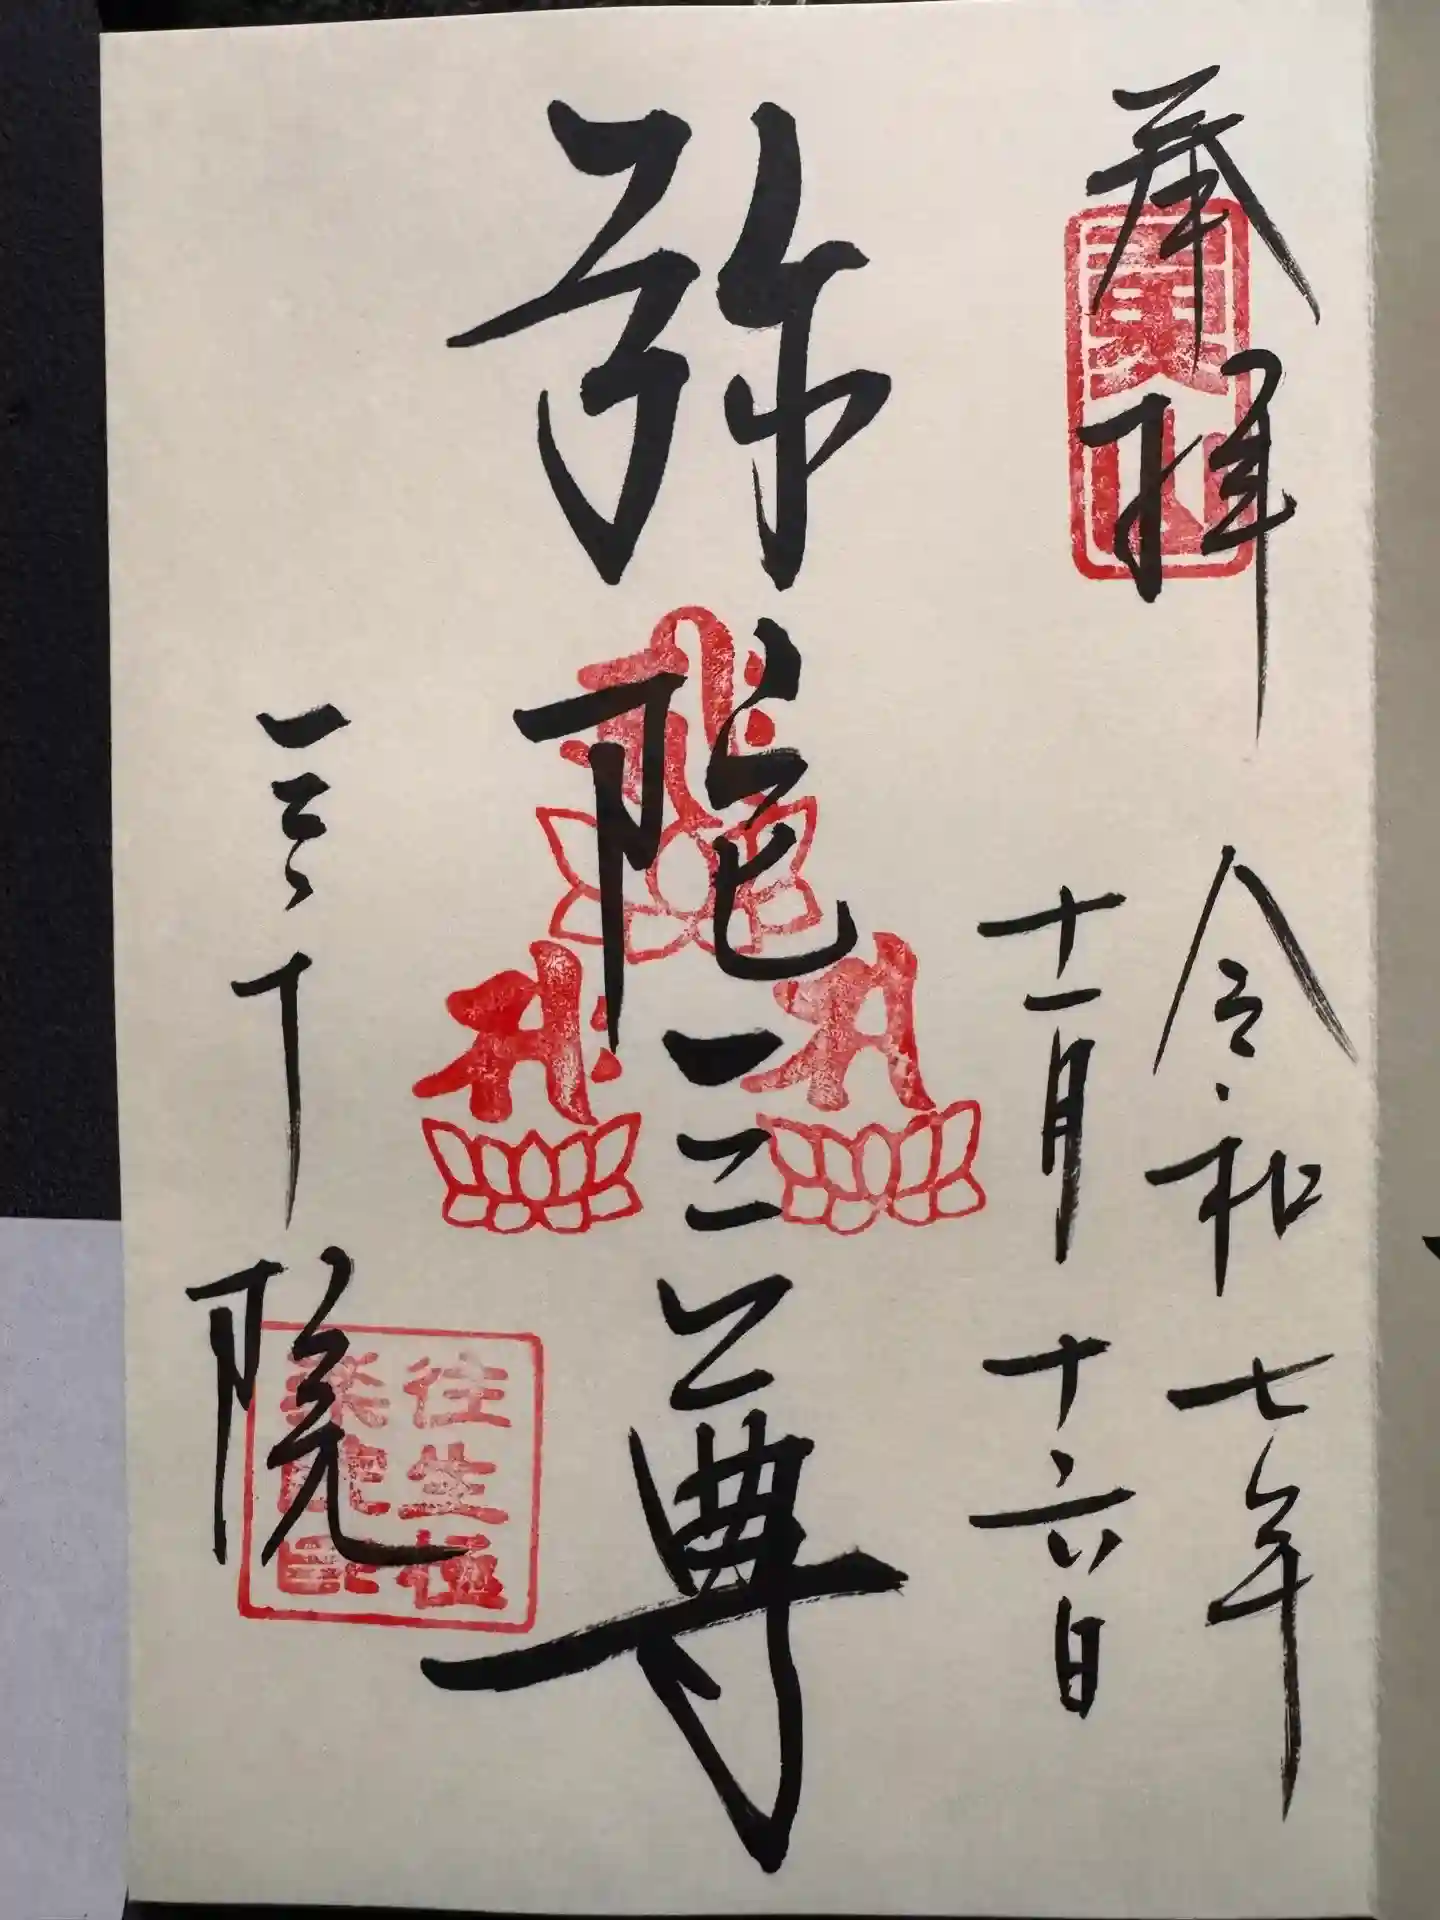 奉拝
魚山
令和七年
十一月十六日
弥陀三尊
三千院
往生極
楽院印